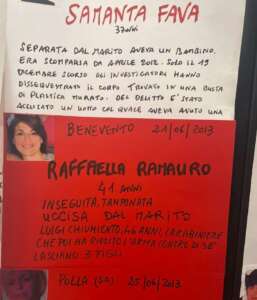 SAMANTA FAVA
37 ANNI
SEPARATA DAL MARITO AVEVA UN BAMBINO.
ERA SCOMPARSA DA APRILE 2012. SOLO IL 19
DICEMBRE SCORSO GLI INVESTIGATORI HANNO
DISSEQUESTRATO IL CORPO TROVATO IN UNA BUSTA
DI PLASTICA MURATO. DEL DELITTO E' STATO
ACCUSATO UN UOMO COL QUALE AVEVA AVUTO UNA
BENEVENTO 21/06/2013
RAFFAELLA RAMAURO
41 ANNI
INSEGUITA, TAMPONATA
UCCISA DAL MARITO
LUIGI CHIUMIENTO, 46 ANNI, CARABINIERE
CHE POI HA RIVOLTO L'ARMA CONTRO DI SE'
LASCIANO 3 FIGLI
POLLA (SA) 25/06/2013